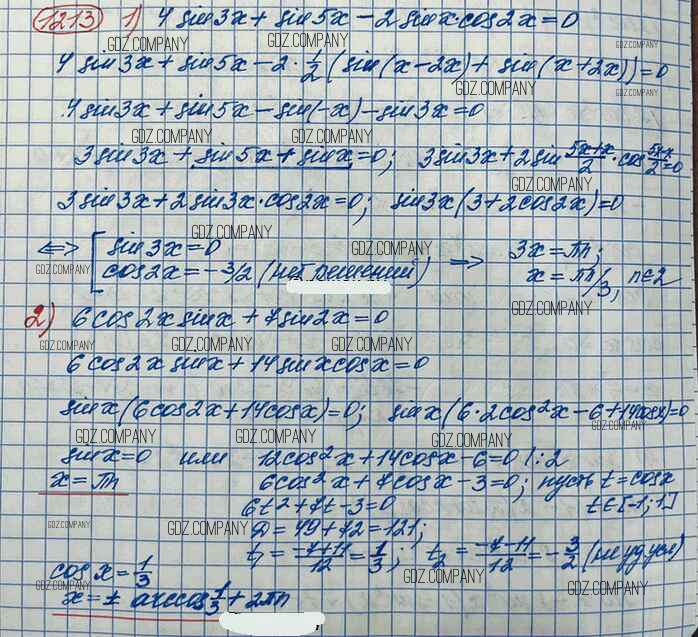 1213 1) 4 sin3x + sin5x − 2 sinx·cos2x = 0
GDZ.COMPANY GDZ.COMPANY GDZ.COMPANY
4 sin3x + sin5x − 2·1/2 (sin(x−2x) + sin(x+2x)) = 0
GDZ.COMPANY GDZ.COMPANY
4 sin3x + sin5x − sin(−x) − sin3x = 0
GDZ.COMPANY GDZ.COMPANY
3 sin3x + sin5x + sinx = 0; 3 sin3x + 2 sin (5x+x)/2 · cos (5x−x)/2 = 0
GDZ.COMPANY
3 sin3x + 2 sin3x·cos2x = 0; sin3x(3 + 2cos2x) = 0
GDZ.COMPANY GDZ.COMPANY
⟺ [ sin3x = 0
cos2x = −3/2 (нет решений) ⟹ 3x = πn;
x = πn/3, n∈Z
GDZ.COMPANY GDZ.COMPANY
2) 6 cos2x sinx + 7 sin2x = 0
GDZ.COMPANY GDZ.COMPANY GDZ.COMPANY
6 cos2x sinx + 14 sinx cosx = 0
sinx(6cos2x + 14cosx) = 0; sinx(6·2cos²x − 6 + 14cosx) = 0
GDZ.COMPANY GDZ.COMPANY GDZ.COMPANY
sinx = 0 или 12cos²x + 14cosx − 6 = 0 |:2
x = πn 6cos²x + 7cosx − 3 = 0; пусть t = cosx
6t² + 7t − 3 = 0 t∈[−1;1]
GDZ.COMPANY GDZ.COMPANY GDZ.COMPANY
D = 49 + 72 = 121;
t₁ = (−7+11)/12 = 1/3; t₂ = (−7−11)/12 = −3/2 (не уд усл)
GDZ.COMPANY GDZ.COMPANY GDZ.COMPANY
cosx = 1/3
x = ± arccos 1/3 + 2πn
GDZ.COMPANY